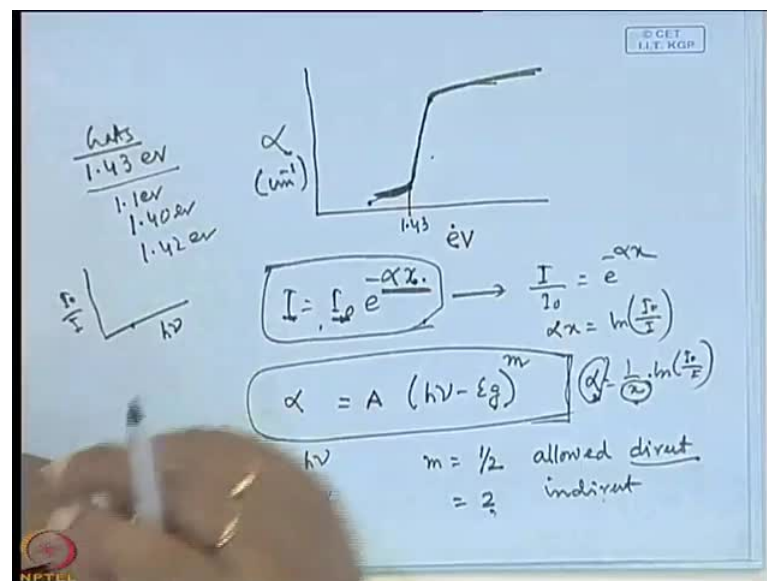 © CET
I.I.T. KGP
GaAs
1.43 ev
1.1ev
1.40 ev
1.42 ev
α
(cm⁻¹)
1.43
ev
I₀/I
hν
I = I₀ e^-αx.
→ I/I₀ = e^-αx
αx = ln(I₀/I)
α = A (hν - εg)^m
α = 1/x · ln(I₀/I)
hν
m = 1/2 allowed direct
= 2 indirect
NPTEL